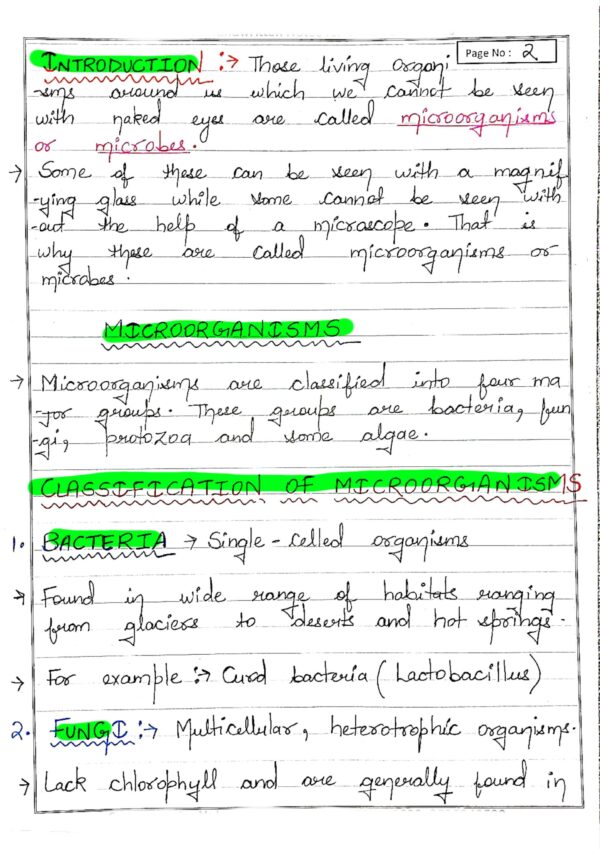 Page No : 2
INTRODUCTION :→ Those living organi
-sms around us which we cannot be seen
with naked eyes are called microorganisms
or microbes.
→ Some of these can be seen with a magnif
-ying glass while some cannot be seen with
-out the help of a microscope. That is
why these are called microorganisms or
microbes.
MICROORGANISMS
→ Microorganisms are classified into four ma
-jor groups. These groups are bacteria, fun
-gi, protozoa and some algae.
CLASSIFICATION OF MICROORGIANISMS
1. BACTERIA → Single-celled organisms
→ Found in wide range of habitats ranging
from glaciers to deserts and hot springs.
→ For example :→ Curd bacteria (Lactobacillus)
2. FUNGI :→ Multicellular, heterotrophic organisms.
→ Lack chlorophyll and are generally found in